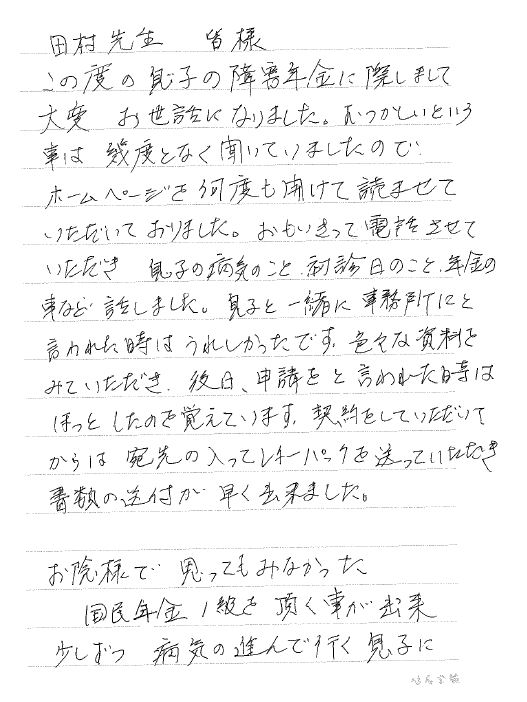 田村先生 皆様
この度の息子の障害年金に際しまして
大変 お世話になりました。むつかしいという
事は 幾度となく聞いていましたので
ホームページを何度も開けて読ませて
いただいておりました。おもいきって電話させて
いただき 息子の病気のこと、初診日のこと、年金の
事など 話しました。息子と一緒に 事務所にと
言われた時は うれしかったです。色々な資料を
みていただき、後日、申請をと言われた時は
ほっと したのを覚えています。契約をしていただいて
からは 宛先の入ってレターパックを送っていただき
書類の送付が 早く出来ました。
お陰様で 思ってもみなかった
国民年金1級を 頂く事が出来
少しずつ 病気の進んで行く 息子に